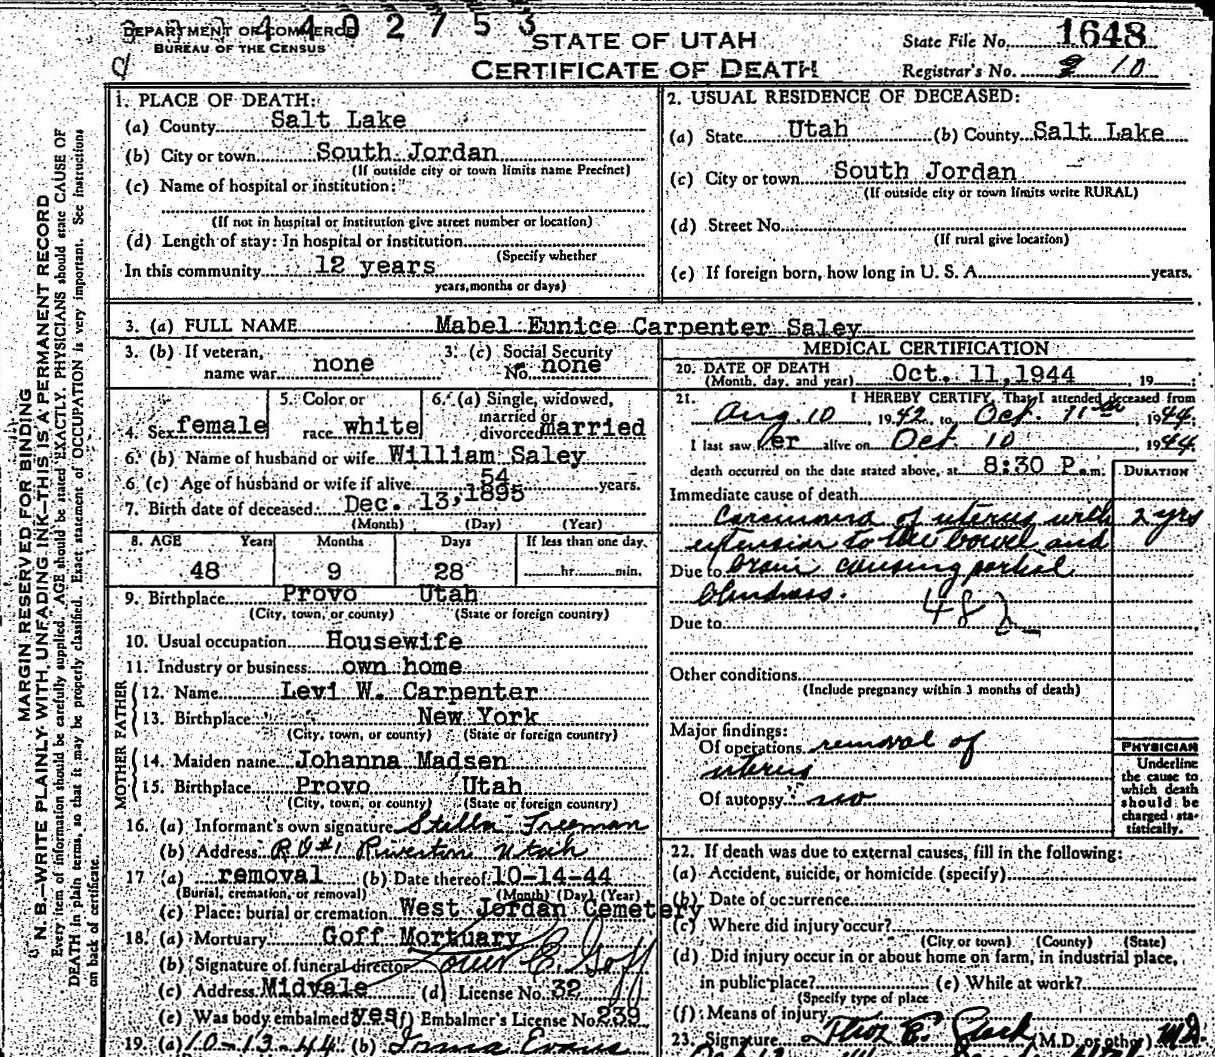 4402753
DEPARTMENT OF COMMERCE
BUREAU OF THE CENSUS
STATE OF UTAH
CERTIFICATE OF DEATH
State File No. 1648
Registrar's No. 10
MARGIN RESERVED FOR BINDING
N. B.—WRITE PLAINLY WITH UNFADING INK—THIS IS A PERMANENT RECORD
Every item of information should be carefully supplied. AGE should be stated EXACTLY. PHYSICIANS should state CAUSE OF
DEATH in plain terms, so that it may be properly classified. Exact statement of OCCUPATION is very important. See instructions
on back of certificate.
1. PLACE OF DEATH:
(a) County Salt Lake
(b) City or town South Jordan
(If outside city or town limits name Precinct)
(c) Name of hospital or institution:
(If not in hospital or institution give street number or location)
(d) Length of stay: In hospital or institution
(Specify whether
In this community 12 years
years, months or days)
2. USUAL RESIDENCE OF DECEASED:
(a) State Utah (b) County Salt Lake
(c) City or town South Jordan
(If outside city or town limits write RURAL)
(d) Street No.
(If rural give location)
(e) If foreign born, how long in U. S. A. years.
3. (a) FULL NAME Mabel Eunice Carpenter Saley
3. (b) If veteran, name war none
3. (c) Social Security No. none
4. Sex female
5. Color or race white
6. (a) Single, widowed, married or divorced married
6. (b) Name of husband or wife William Saley
6. (c) Age of husband or wife if alive 54 years.
7. Birth date of deceased Dec. 13, 1895
(Month) (Day) (Year)
8. AGE Years Months Days If less than one day
48 9 28 hr. min.
9. Birthplace Provo Utah
(City, town, or county) (State or foreign country)
10. Usual occupation Housewife
11. Industry or business own home
FATHER
12. Name Levi W. Carpenter
13. Birthplace New York
(City, town, or county) (State or foreign country)
MOTHER
14. Maiden name Johanna Madsen
15. Birthplace Provo Utah
(City, town, or county) (State or foreign country)
16. (a) Informant's own signature Stella Freeman
(b) Address R D #1 Riverton Utah
17. (a) removal (b) Date thereof 10-14-44
(Burial, cremation, or removal) (Month) (Day) (Year)
(c) Place: burial or cremation West Jordan Cemetery
18. (a) Mortuary Goff Mortuary
(b) Signature of funeral director Goff
(c) Address Midvale (d) License No. 32
(e) Was body embalmed? yes (f) Embalmer's License No. 239
19. (a) 10-13-44 (b) Irma Evans
MEDICAL CERTIFICATION
20. DATE OF DEATH
(Month, day, and year) Oct. 11, 1944, 19 ;
21. I HEREBY CERTIFY, That I attended deceased from
Aug. 10, 1942, to Oct. 11th, 1944,
I last saw her alive on Oct. 10 1944,
death occurred on the date stated above, at 8:30 P m.
DURATION
Immediate cause of death
Carcinoma of uterus with 2 yrs
extension to the bowel and
Due to brain causing partial
blindness.
48
Due to
Other conditions
(Include pregnancy within 3 months of death)
Major findings:
Of operations removal of
uterus
Of autopsy no
PHYSICIAN
Underline
the cause to
which death
should be
charged sta-
tistically.
22. If death was due to external causes, fill in the following:
(a) Accident, suicide, or homicide (specify)
(b) Date of occurrence
(c) Where did injury occur?
(City or town) (County) (State)
(d) Did injury occur in or about home on farm, in industrial place,
in public place? (e) While at work?
(Specify type of place
(f) Means of injury
23. Signature E. M.D. or other M.D.